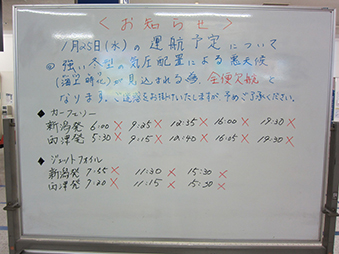 ＜お知らせ＞
1月25日(水)の運航予定について
強い冬型の気圧配置による悪天候
(海上時化)が見込まれる為、全便欠航と
なります。ご迷惑をお掛けいたしますが、予めご了承ください。
◆ カーフェリー
新潟発 6:00 × 9:25 × 12:35 × 16:00 × 19:30 ×
両津発 5:30 × 9:15 × 12:40 × 16:05 × 19:30 ×
◆ ジェットフォイル
新潟発 7:55 × 11:30 × 15:30 ×
両津発 7:20 × 11:15 × 15:30 ×